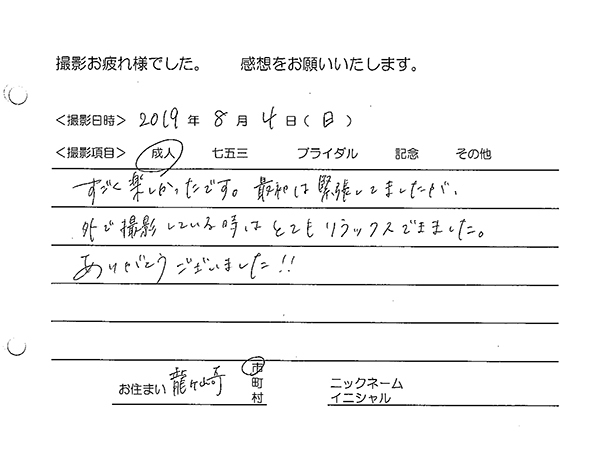 撮影お疲れ様でした。 感想をお願いいたします。
＜撮影日時＞ 2019 年 8 月 4 日 ( 日 )
＜撮影項目＞ 成人 七五三 ブライダル 記念 その他
すごく楽しかったです。最初は緊張してましたが、
外で撮影している時はとてもリラックスできました。
ありがとうございました!!
お住まい 龍ヶ崎 市 町 村 ニックネーム イニシャル